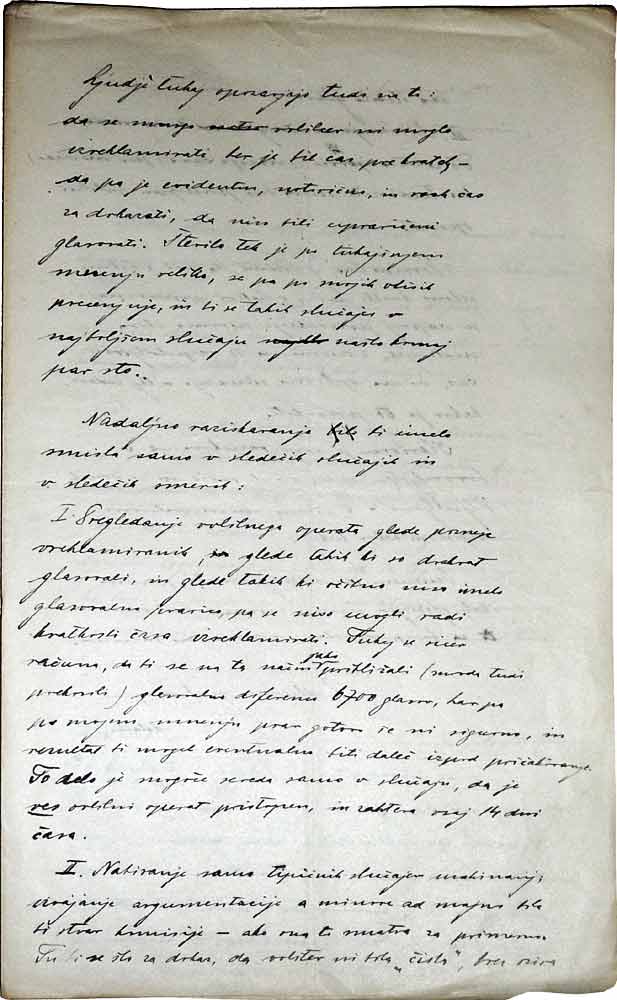 Ljudje tukaj opozarjajo tudi na to:
da se volilcev ni moglo
izreklamirati ker je bil čas prekratek –
da pa je evidentno, notorično, in čas
za dokazati, da niso bili upravičeni
glasovati. Število teh je po tukajšnjem
mnenju veliko, se pa po mojih
precenjuje, in bi se takih slučajev v
najboljšem slučaju našlo komaj
par sto.
Nadaljno raziskavanje bi imelo
smisla samo v sledečih slučajih in
v sledečih smerih:
I. Pregledanje volilnega operata glede pozneje
vreklamiranih, glede takih ki so dvakrat
glasovali, in glede takih ki očitno niso imeli
glasovalno pravico, pa se niso mogli radi
kratkosti časa izreklamirati. Tukaj se sicer
računa, da bi se na ta način jako približali (morda tudi
prekosili) glasovalno diferenco 6700 glasov, kar pa
po mojem mnenju prav gotovo še ni sigurno, in
rezultat bi mogel eventualno biti daleč izpod pričakovanja.
To delo je mogoče seveda samo v slučaju, da je
ves volilni operat pristopen, in zahteva vsaj 14 dni
časa.
II. Natiranje samo tipičnih slučajev mahinacij;
izvajanje argumentacije a minore ad majus bila
bi stvar komisije – ako ona to smatra za primerno.
Tu bi se šlo za dokaz, da volitev ni bila „čista", brez ozira